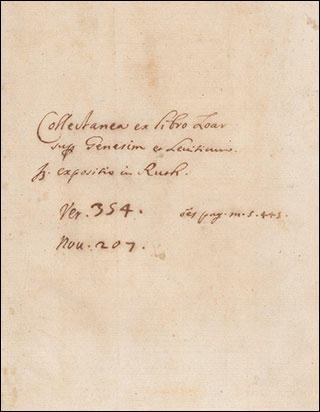 Collectanea ex libro Zoar
sup Genesim et Leviticum.
expositio in Ruth.
Ver. 354.
pag. m. s. 443.
Nou. 207.